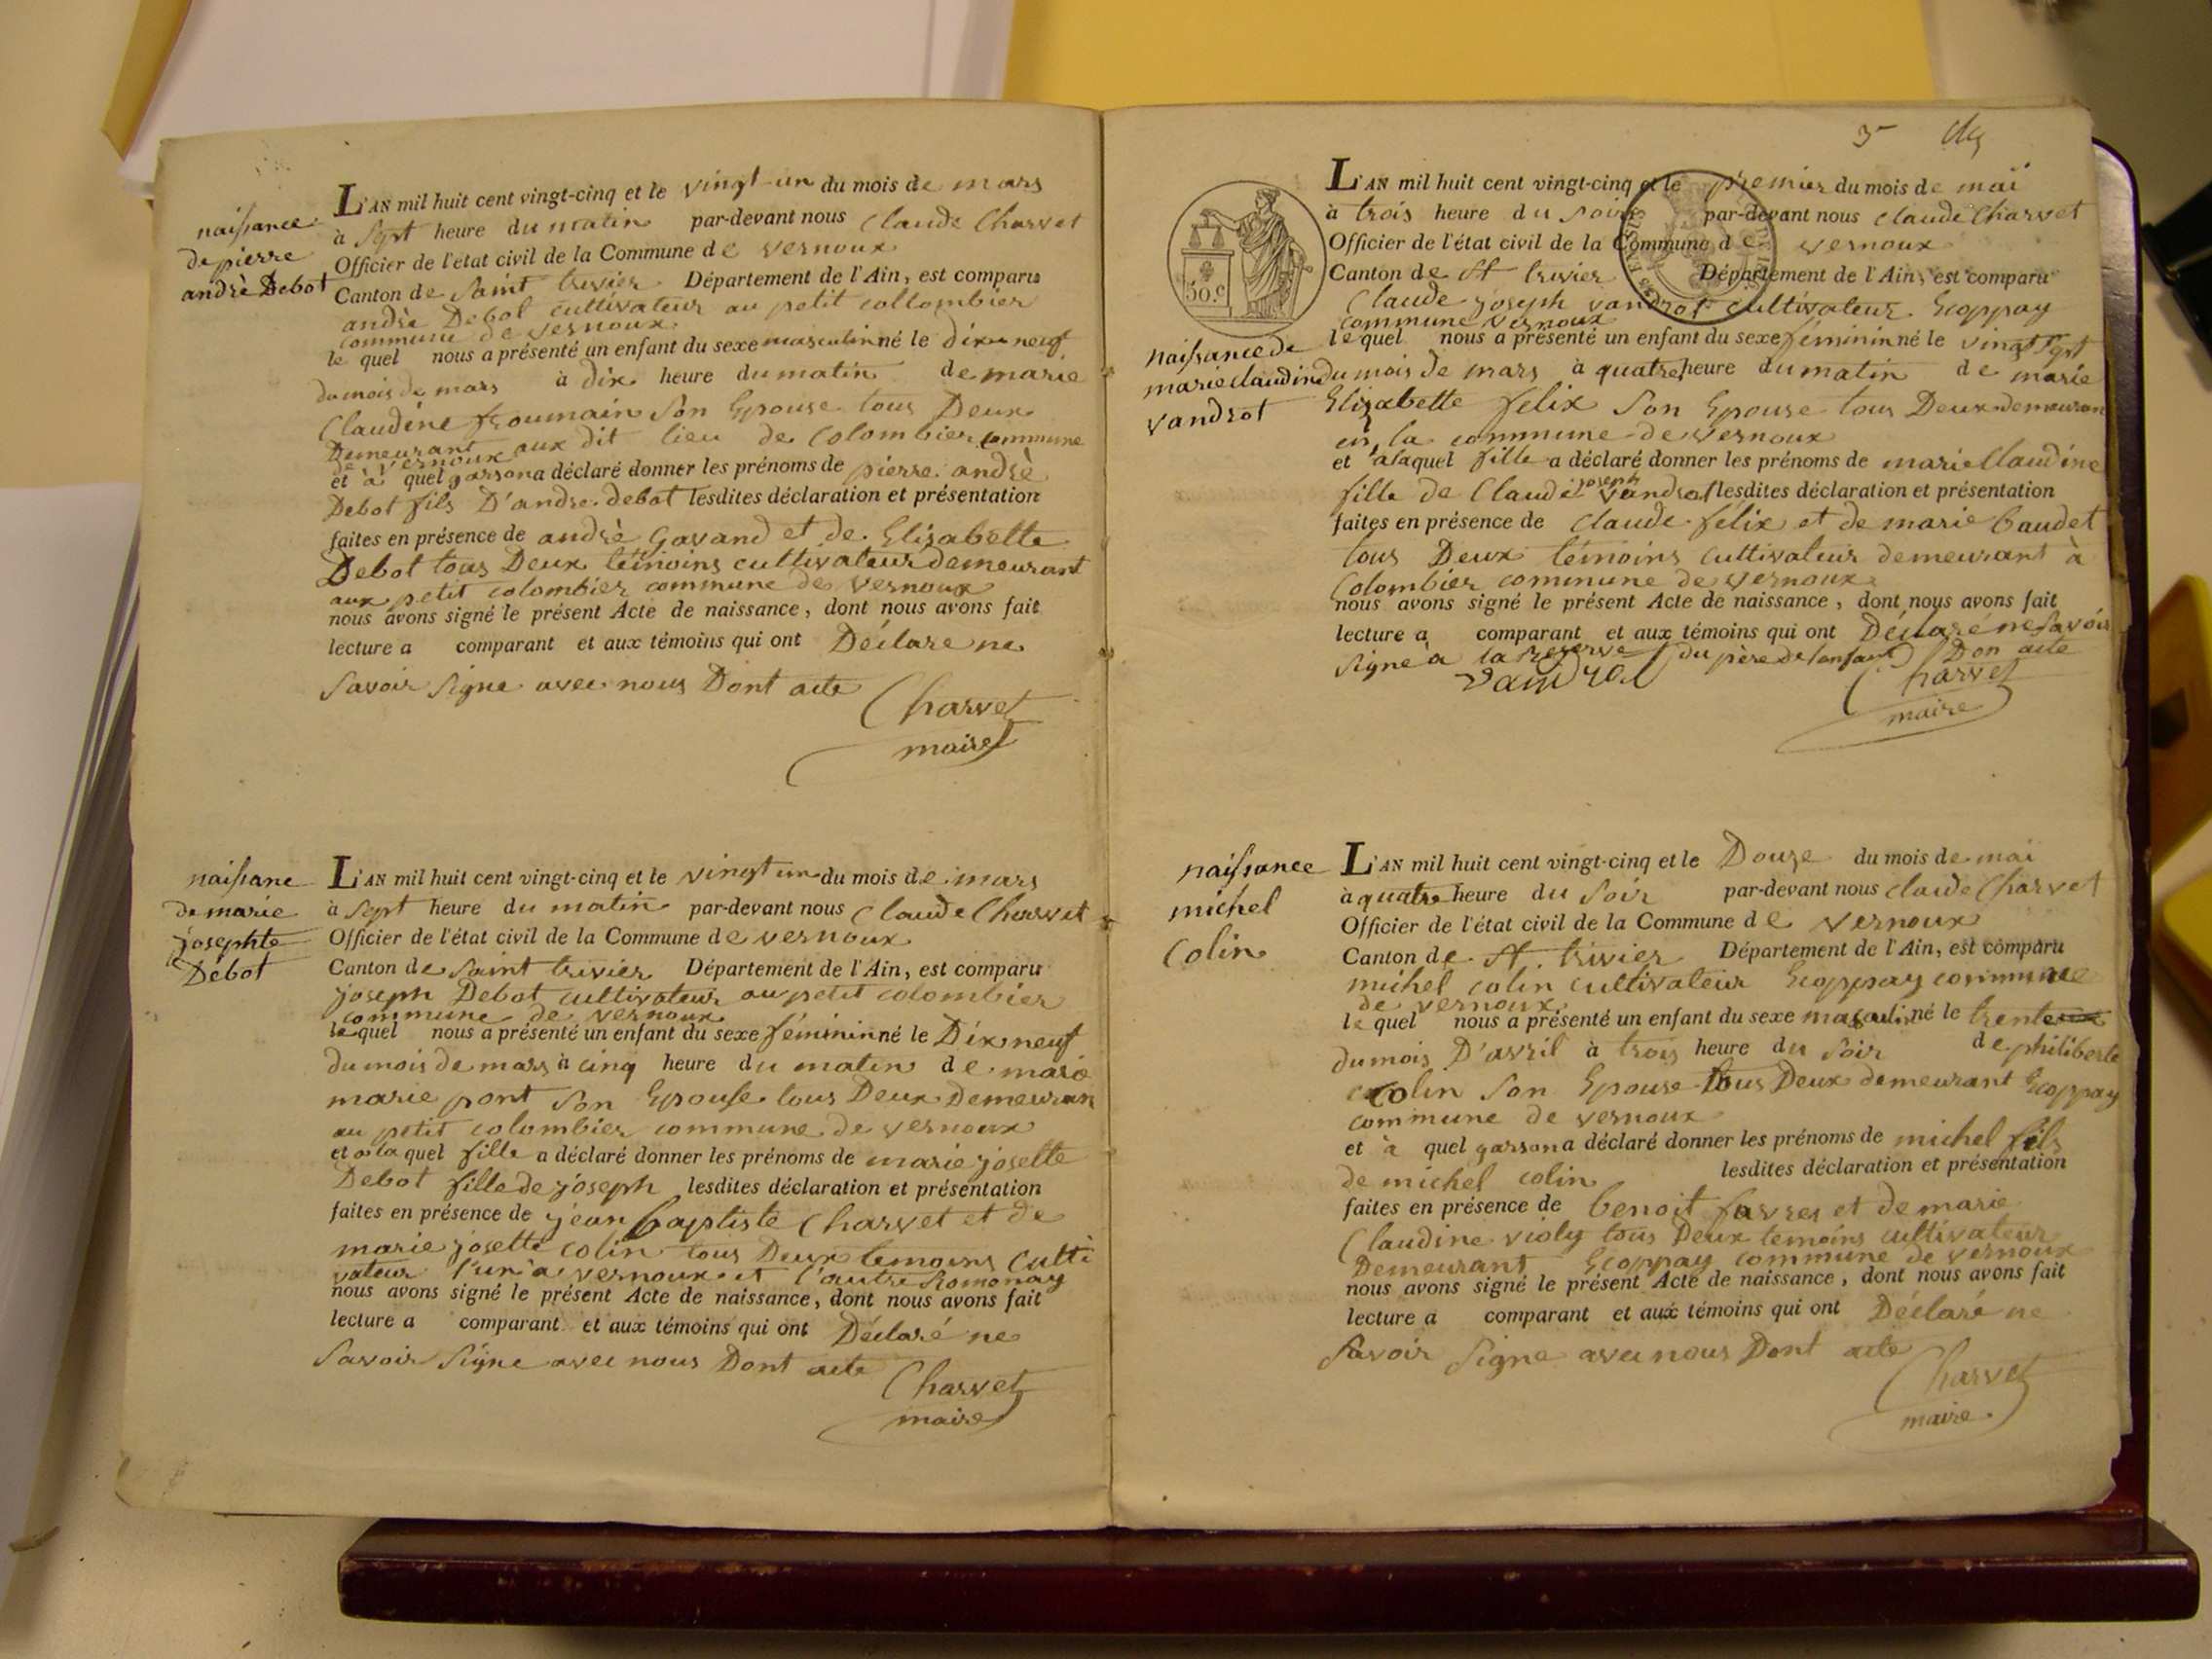 naissance
de pierre
andrè Debot
L'AN mil huit cent vingt-cinq et le vingt-un du mois de mars
à sept heure du matin par-devant nous Claude Charvet
Officier de l'état civil de la Commune de vernoux
Canton de Saint trivier Département de l'Ain, est comparu
andrè Debot cultivateur au petit collombier
commune de vernoux
le quel nous a présenté un enfant du sexe masculin né le dix neuf
du mois de mars à dix heure du matin de marie
Claudine froumain son Epouse tous Deux
Demeurant aux dit lieu de Colombier commune
de vernoux
et à quel garson a déclaré donner les prénoms de pierre andrè
Debot fils D'andre debot lesdites déclaration et présentation
faites en présence de andrè Gavand et de Elisabette
Debot tous Deux témoins cultivateur demeurant
aux petit colombier commune de vernoux
nous avons signé le présent Acte de naissance, dont nous avons fait
lecture a comparant et aux témoins qui ont Déclare ne
savoir signe avec nous Dont acte
Charvet
maire
naissane
de marie
josephte
Debot
L'AN mil huit cent vingt-cinq et le vingt un du mois de mars
à sept heure du matin par-devant nous Claude Charvet
Officier de l'état civil de la Commune de vernoux
Canton de Saint trivier Département de l'Ain, est comparu
joseph Debot cultivateur au petit colombier
commune de vernoux
le quel nous a présenté un enfant du sexe féminin né le Dix neuf
du mois de mars à cinq heure du matin de marie
marie pont son Epouse tous Deux Demeuran
au petit colombier commune de vernoux
et à la quel fille a déclaré donner les prénoms de marie josette
Debot fille de joseph lesdites déclaration et présentation
faites en présence de jean baptiste Charvet et de
marie josette colin tous Deux temoins culti
vateur l'un a vernoux et l'autre Romonay
nous avons signé le présent Acte de naissance, dont nous avons fait
lecture a comparant et aux témoins qui ont Déclaré ne
savoir signe avec nous Dont acte
Charvet
maire
3
50.c
naissance de
marie claudine
vandrot
L'AN mil huit cent vingt-cinq et le premier du mois de mai
à trois heure du soir par-devant nous claude Charvet
Officier de l'état civil de la Commune de vernoux
Canton de St trivier Département de l'Ain, est comparu
Claude joseph vandrot cultivateur Ecoppay
commune vernoux
le quel nous a présenté un enfant du sexe féminin né le vingt sept
du mois de mars à quatre heure du matin de marie
Elisabette felix son Epouse tous Deux demeuran
en la commune de vernoux
et a la quel fille a déclaré donner les prénoms de marie Claudine
fille de Claude joseph vandrot lesdites déclaration et présentation
faites en présence de claude felix et de marie baudet
tous Deux témoins cultivateur demeurant à
Colombier commune de vernoux
nous avons signé le présent Acte de naissance, dont nous avons fait
lecture a comparant et aux témoins qui ont Déclaré ne savoir
signe a la reserve du père de l'enfant Don acte
Charvet
maire
naissance
michel
Colin
L'AN mil huit cent vingt-cinq et le Douze du mois de mai
à quatre heure du soir par-devant nous claude Charvet
Officier de l'état civil de la Commune de vernoux
Canton de St trivier Département de l'Ain, est comparu
michel colin cultivateur Ecoppay commune
de vernoux
le quel nous a présenté un enfant du sexe masculin né le trente
du mois D'avril à trois heure du soir de philiberte
colin son Epouse tous Deux demeurant Ecoppay
commune de vernoux
et à quel garson a déclaré donner les prénoms de michel fils
de michel colin lesdites déclaration et présentation
faites en présence de benoit favres et de marie
Claudine violy tous Deux temoins cultivateur
Demeurant Ecoppay commune de vernoux
nous avons signé le présent Acte de naissance, dont nous avons fait
lecture a comparant et aux témoins qui ont Déclaré ne
savoir signe avec nous Dont acte
Charvet
maire